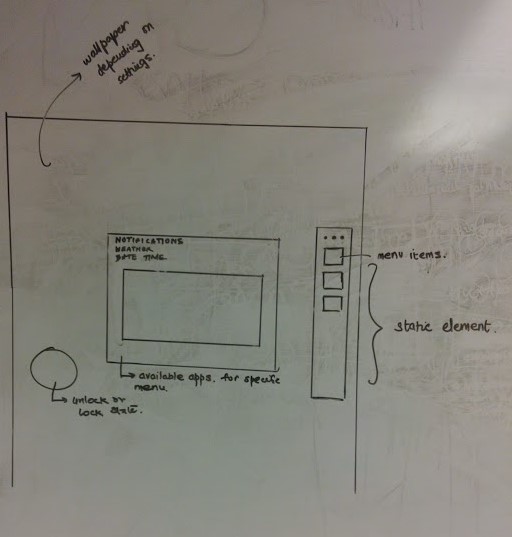 wallpaper
depending on
settings.
NOTIFICATIONS
WEATHER
DATE TIME.
menu items.
static element.
available apps. for specific
menu.
unlock or
lock state.